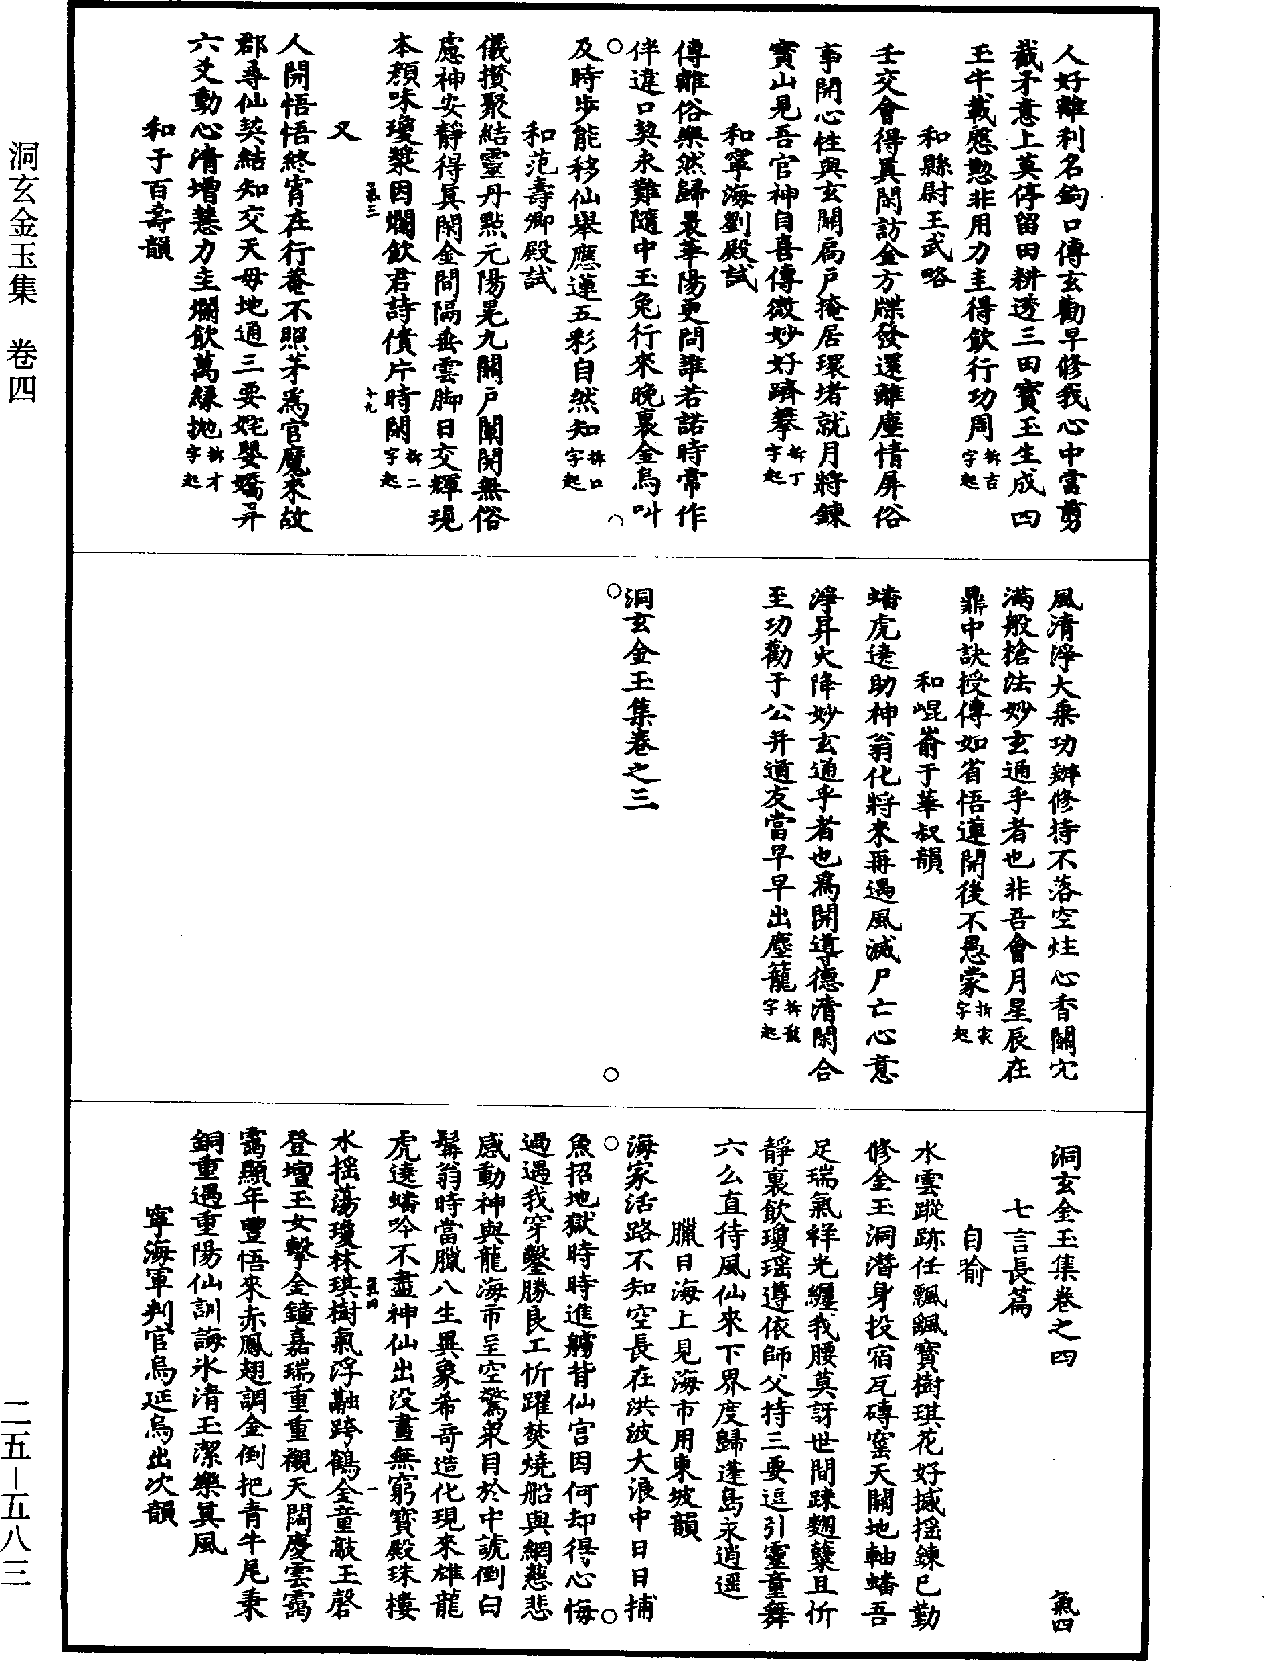 洞玄金玉集 卷四
二五—五八三
人好離利名鈎口傳玄勸早修我心中雲剪
截矛意上莫停留田耕透三田寶玉生成四
王牛載慇懃非用力主得飲行功周拆吉字起
和縣尉王武略
壬交會得真閑訪金方牒發還離塵情屏俗
事開心性與玄關扃戶掩居環堵就月將鍊
寶山見吾官神自喜傳微妙好躋攀拆丁字起
和寧海劉殿試
傳離俗樂然歸最華陽更問誰若諾時常作
伴違口契永難隨中玉兔行來晚裏金烏叫
及時步能移仙舉應蓮五彩自然知拆口字起
和范壽卿殿試
儀攢聚結靈丹點元陽晃九關戶闡開無俗
慮神安靜得真閑金間隔垂雲脚日交輝現
本顏味瓊漿因爛飲君詩債片時閑拆二字起
氣三
十九
又
人開悟悟終宵在行菴不照茅為官魔來故
郡尋仙契結知交天母地通三要姹嬰嬌昇
六爻動心清增慧力圭爛飲萬緣拋拆才字起
和于百壽韻
風清淨大乘功辦修持不落空炷心香關穴
滿般搶法妙玄通乎者也非吾會月星辰在
鼎中訣授傳如省悟蓮開後不愚蒙拆家字起
和崐崳于華叔韻
蟠虎遶助神翁化將來再遇風滅尸亡心意
淨昇火降妙玄通乎者也為開導德清閑合
至功勸于公并道友當早早出塵籠拆龍字起
洞玄金玉集卷之三
洞玄金玉集卷之四
氣四
七言長篇
自喻
水雲蹤跡任飄颻寶樹琪花好撼搖鍊巳勤
修金玉洞潛身投宿瓦磚窰天關地軸蟠吾
足瑞氣祥光纏我腰莫訝世間踈麴糵且忻
靜裏飲瓊瑶遵依師父持三要逗引靈童舞
六么直待風仙來下界度歸蓬島永逍遥
臘日海上見海市用東坡韻
海家活路不知空長在洪波大浪中日日捕
魚招地獄時時進舫背仙宫因何却得心悔
過遇我穿鑿勝良工忻躍焚燒船與網慈悲
感動神與龍海市至空驚衆目於中䟦倒白
髯翁時當臘八生異象希奇造化現來雄龍
虎遶蟠吟不盡神仙出没畫無窮寶殿珠樓
氣四
一
水摇蕩瓊林琪樹氣浮融跨鶴金童敲玉磬
登壇玉女擊金鐘嘉瑞重重觀天闊慶雲靄
靄顯年豐悟來赤鳳翅調金倒把青牛尾秉
銅重遇重陽仙訓誨氷清玉潔樂真風
寧海軍判官烏延烏出次韻